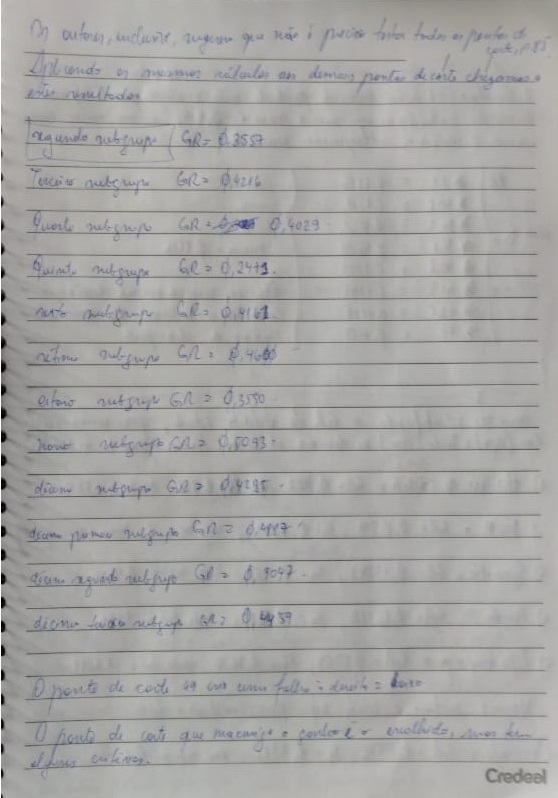 Os autores, inclusive, sugerem que não é preciso testar todos os pontos de
corte, p.85.
Aplicando os mesmos cálculos aos demais pontos de corte chegamos a
estes resultados
segundo subgrupo GR = 0,3557
Terceiro subgrupo GR = 0,4216
Quarto subgrupo GR = 0,4029
Quinto subgrupo GR = 0,2471.
sexto subgrupo GR = 0,4161
sétimo subgrupo GR =
oitavo subgrupo GR = 0,3550
nono subgrupo GR = 0,5093.
décimo subgrupo GR = 0,4295.
décimo primeiro subgrupo GR = 0,4887
décimo segundo subgrupo GR = 0,5047.
décimo terceiro subgrupo GR = 0,4459
O ponto de corte 49 uma folha à direita =
O ponto de corte que o ganho é o escolhido, mas tem
alguns critérios.
Credeal